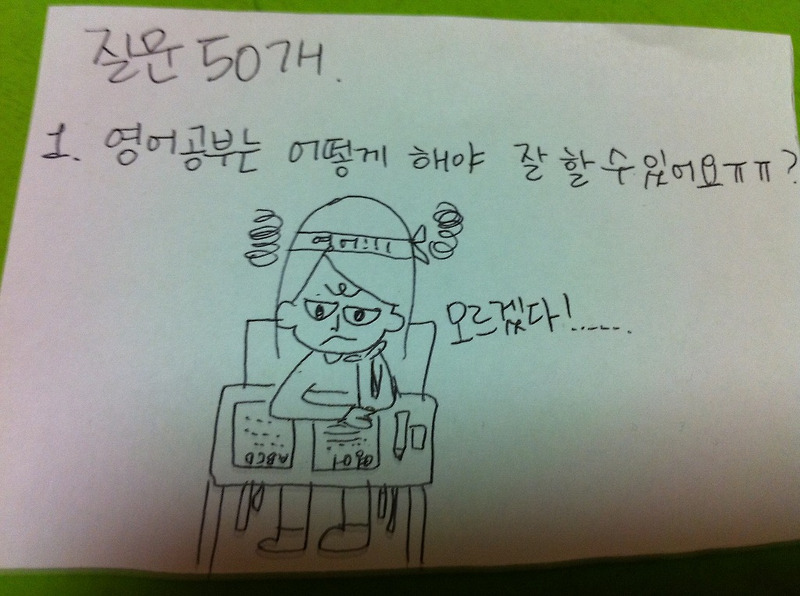 질문 50개.
1. 영어공부는 어떻게 해야 잘 할 수 있어요ㅠㅠ?
영어!!!
모르겠다!......
ABCD
영어